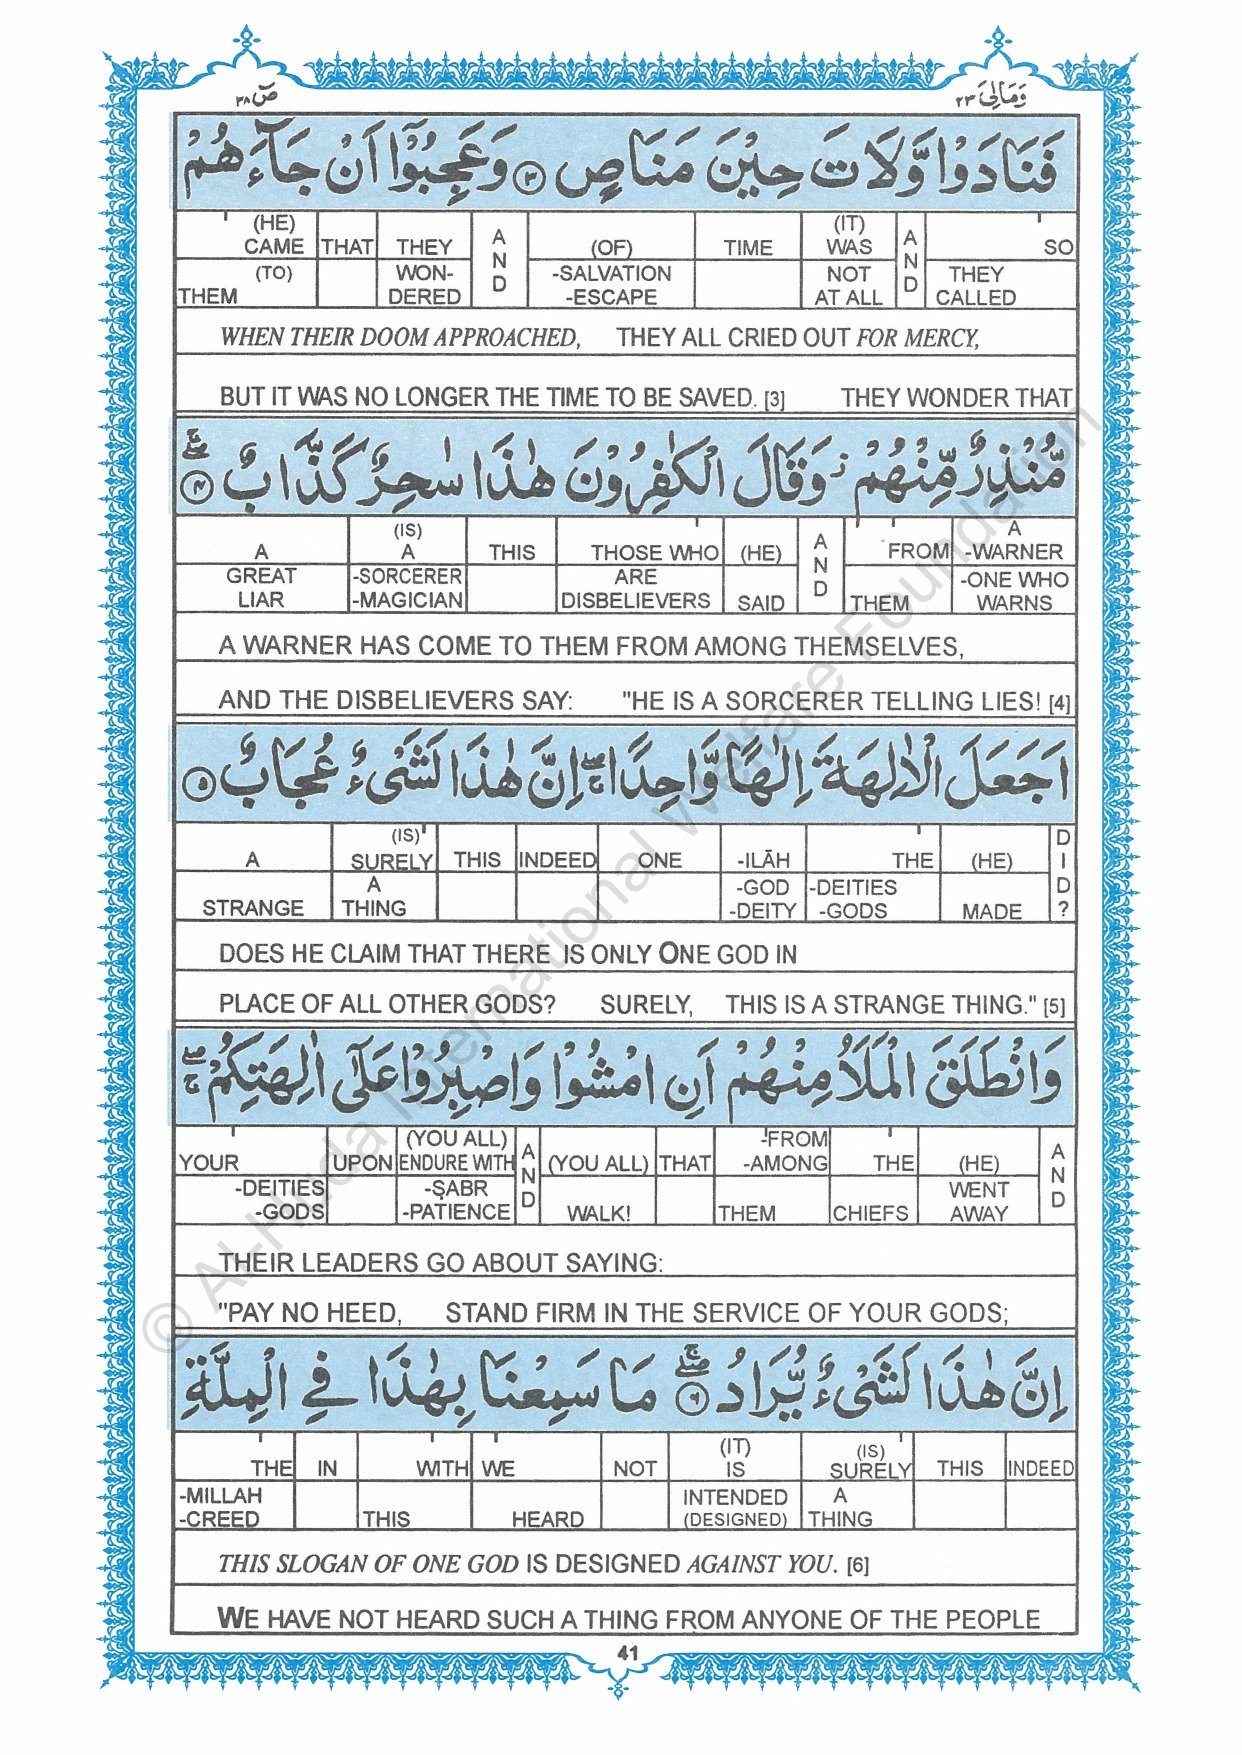 صٓ ٣٨ وَمَالِىَ ٢٣
فَنَادَوْا وَّلَاتَ حِيْنَ مَنَاصٍ ٣ وَعَجِبُوْٓا اَنْ جَآءَهُمْ
(HE) CAME (TO) THEM | THAT | THEY WON-DERED | AND | (OF) -SALVATION -ESCAPE | TIME | (IT) WAS NOT AT ALL | AND | SO THEY CALLED
WHEN THEIR DOOM APPROACHED, THEY ALL CRIED OUT FOR MERCY,
BUT IT WAS NO LONGER THE TIME TO BE SAVED. [3] THEY WONDER THAT
مُّنْذِرٌ مِّنْهُمْ ز وَقَالَ الْكٰفِرُوْنَ هٰذَا سٰحِرٌ كَذَّابٌ ٤
A GREAT LIAR | (IS) A -SORCERER -MAGICIAN | THIS | THOSE WHO ARE DISBELIEVERS | (HE) SAID | AND | FROM THEM | A -WARNER -ONE WHO WARNS
A WARNER HAS COME TO THEM FROM AMONG THEMSELVES,
AND THE DISBELIEVERS SAY: "HE IS A SORCERER TELLING LIES! [4]
اَجَعَلَ الْاٰلِهَةَ اِلٰهًا وَّاحِدًا ۖ اِنَّ هٰذَا لَشَىْءٌ عُجَابٌ ٥
A STRANGE | (IS) SURELY A THING | THIS | INDEED | ONE | -ILĀH -GOD -DEITY | THE -DEITIES -GODS | (HE) MADE | DID?
DOES HE CLAIM THAT THERE IS ONLY ONE GOD IN
PLACE OF ALL OTHER GODS? SURELY, THIS IS A STRANGE THING." [5]
وَانْطَلَقَ الْمَلَاُ مِنْهُمْ اَنِ امْشُوْا وَاصْبِرُوْا عَلٰٓى اٰلِهَتِكُمْ ۖۚ
YOUR -DEITIES -GODS | UPON | (YOU ALL) ENDURE WITH -ṢABR -PATIENCE | AND | (YOU ALL) WALK! | THAT | -FROM -AMONG THEM | THE CHIEFS | (HE) WENT AWAY | AND
THEIR LEADERS GO ABOUT SAYING:
"PAY NO HEED, STAND FIRM IN THE SERVICE OF YOUR GODS;
اِنَّ هٰذَا لَشَىْءٌ يُّرَادُ ٦ مَا سَمِعْنَا بِهٰذَا فِى الْمِلَّةِ
THE -MILLAH -CREED | IN | WITH THIS | WE HEARD | NOT | (IT) IS INTENDED (DESIGNED) | (IS) SURELY A THING | THIS | INDEED
THIS SLOGAN OF ONE GOD IS DESIGNED AGAINST YOU. [6]
WE HAVE NOT HEARD SUCH A THING FROM ANYONE OF THE PEOPLE
41
© Al-Huda International Welfare Foundation